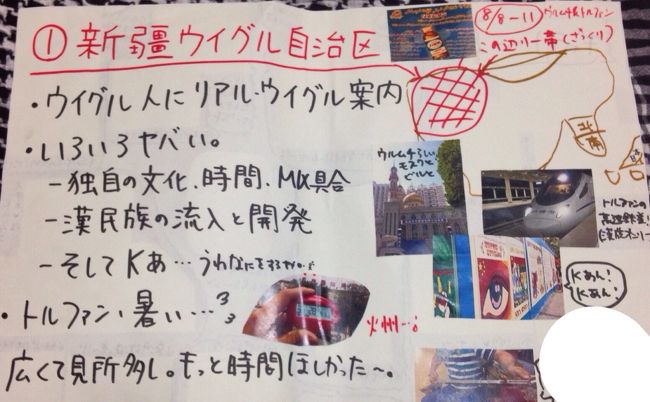 ①新疆ウイグル自治区
8/8-11
ウルムチ&トルファン
この辺り一帯(ざっくり)
・ウイグル人にリアル・ウイグル案内
・いろいろヤバい。
-独自の文化、時間、MIX具合
-漢民族の流入と開発
-そしてKあ…うわなにをするやめ
・トルファン、暑い…
広くて見所多し。もっと時間ほしかった〜。
ウルムチらしい
モスクと
ビルと
トルファンの
高速鉄道!
Kあん!
Kあん!
火州…